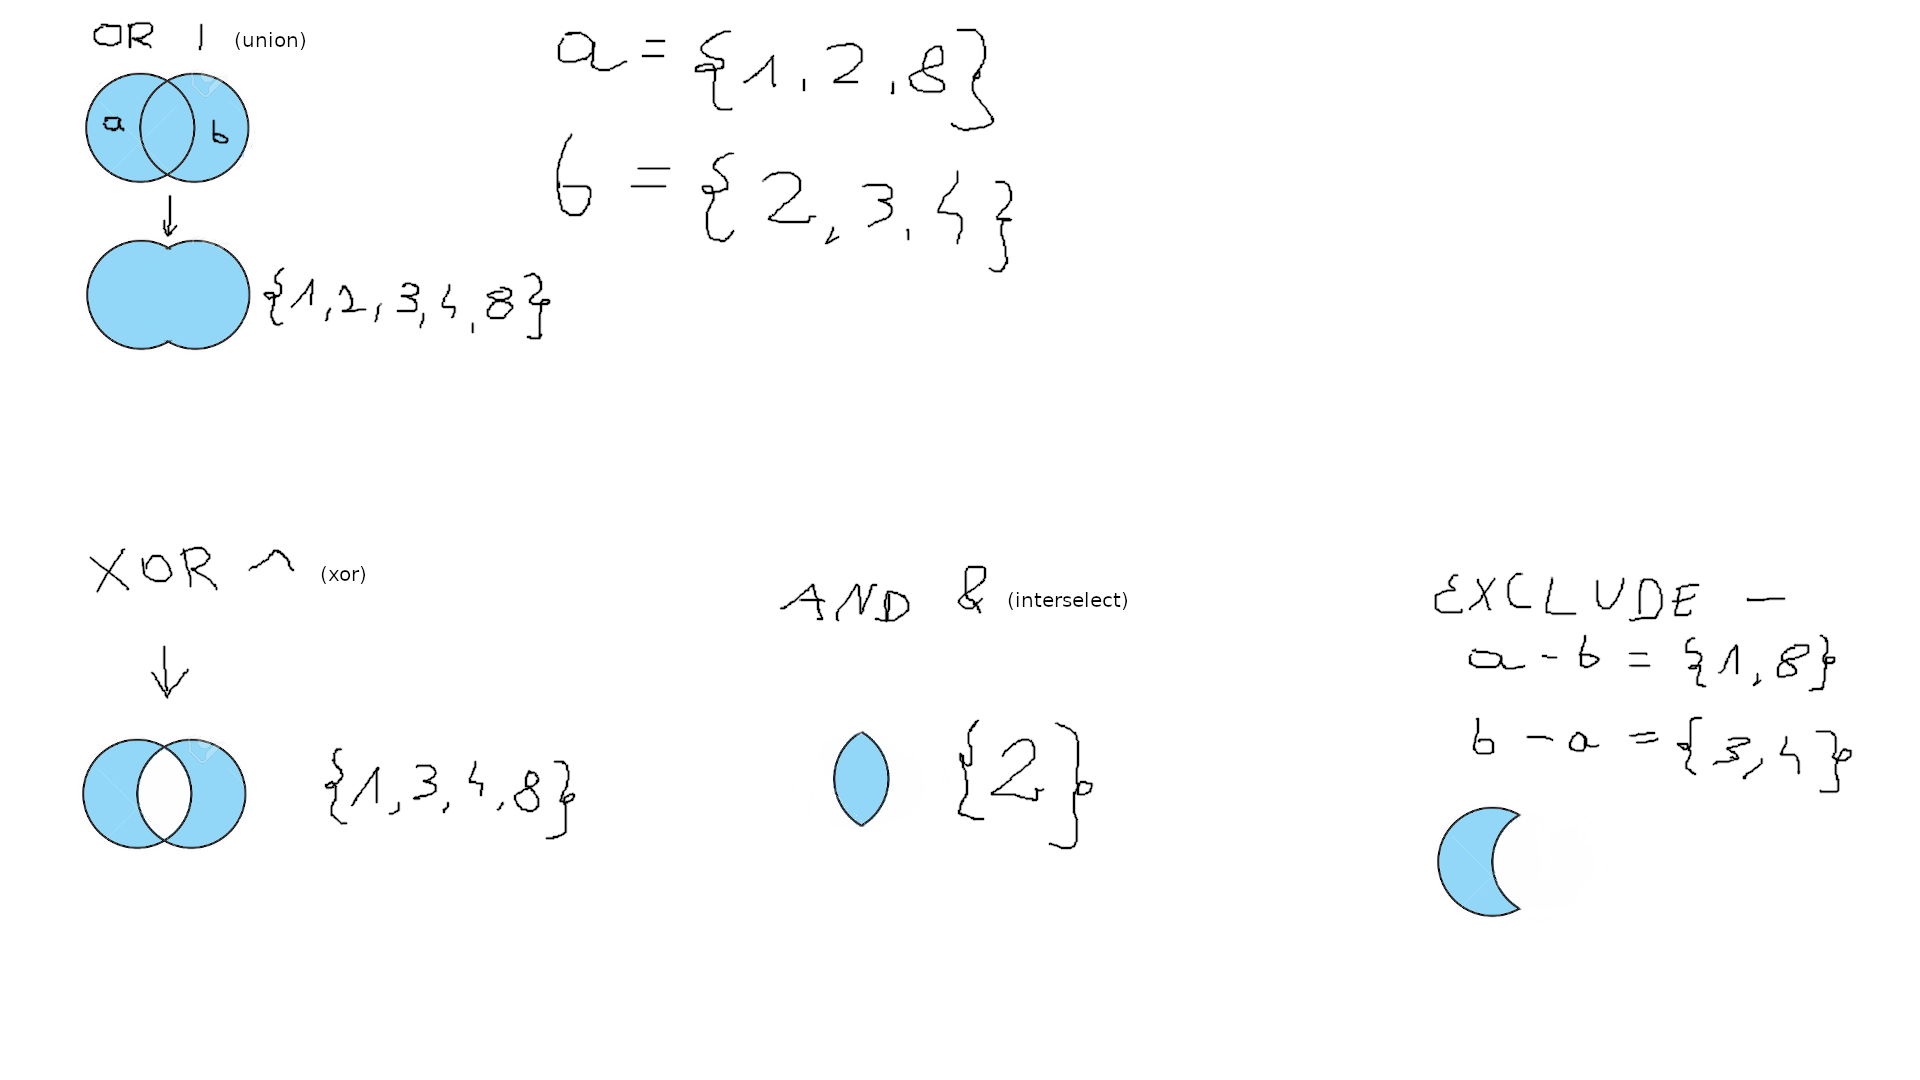 OR | (union)
a = {1, 2, 8}
b = {2, 3, 4}
a b
{1, 2, 3, 4, 8}
XOR ^ (xor)
{1, 3, 4, 8}
AND & (interselect)
{2}
EXCLUDE -
a - b = {1, 8}
b - a = {3, 4}